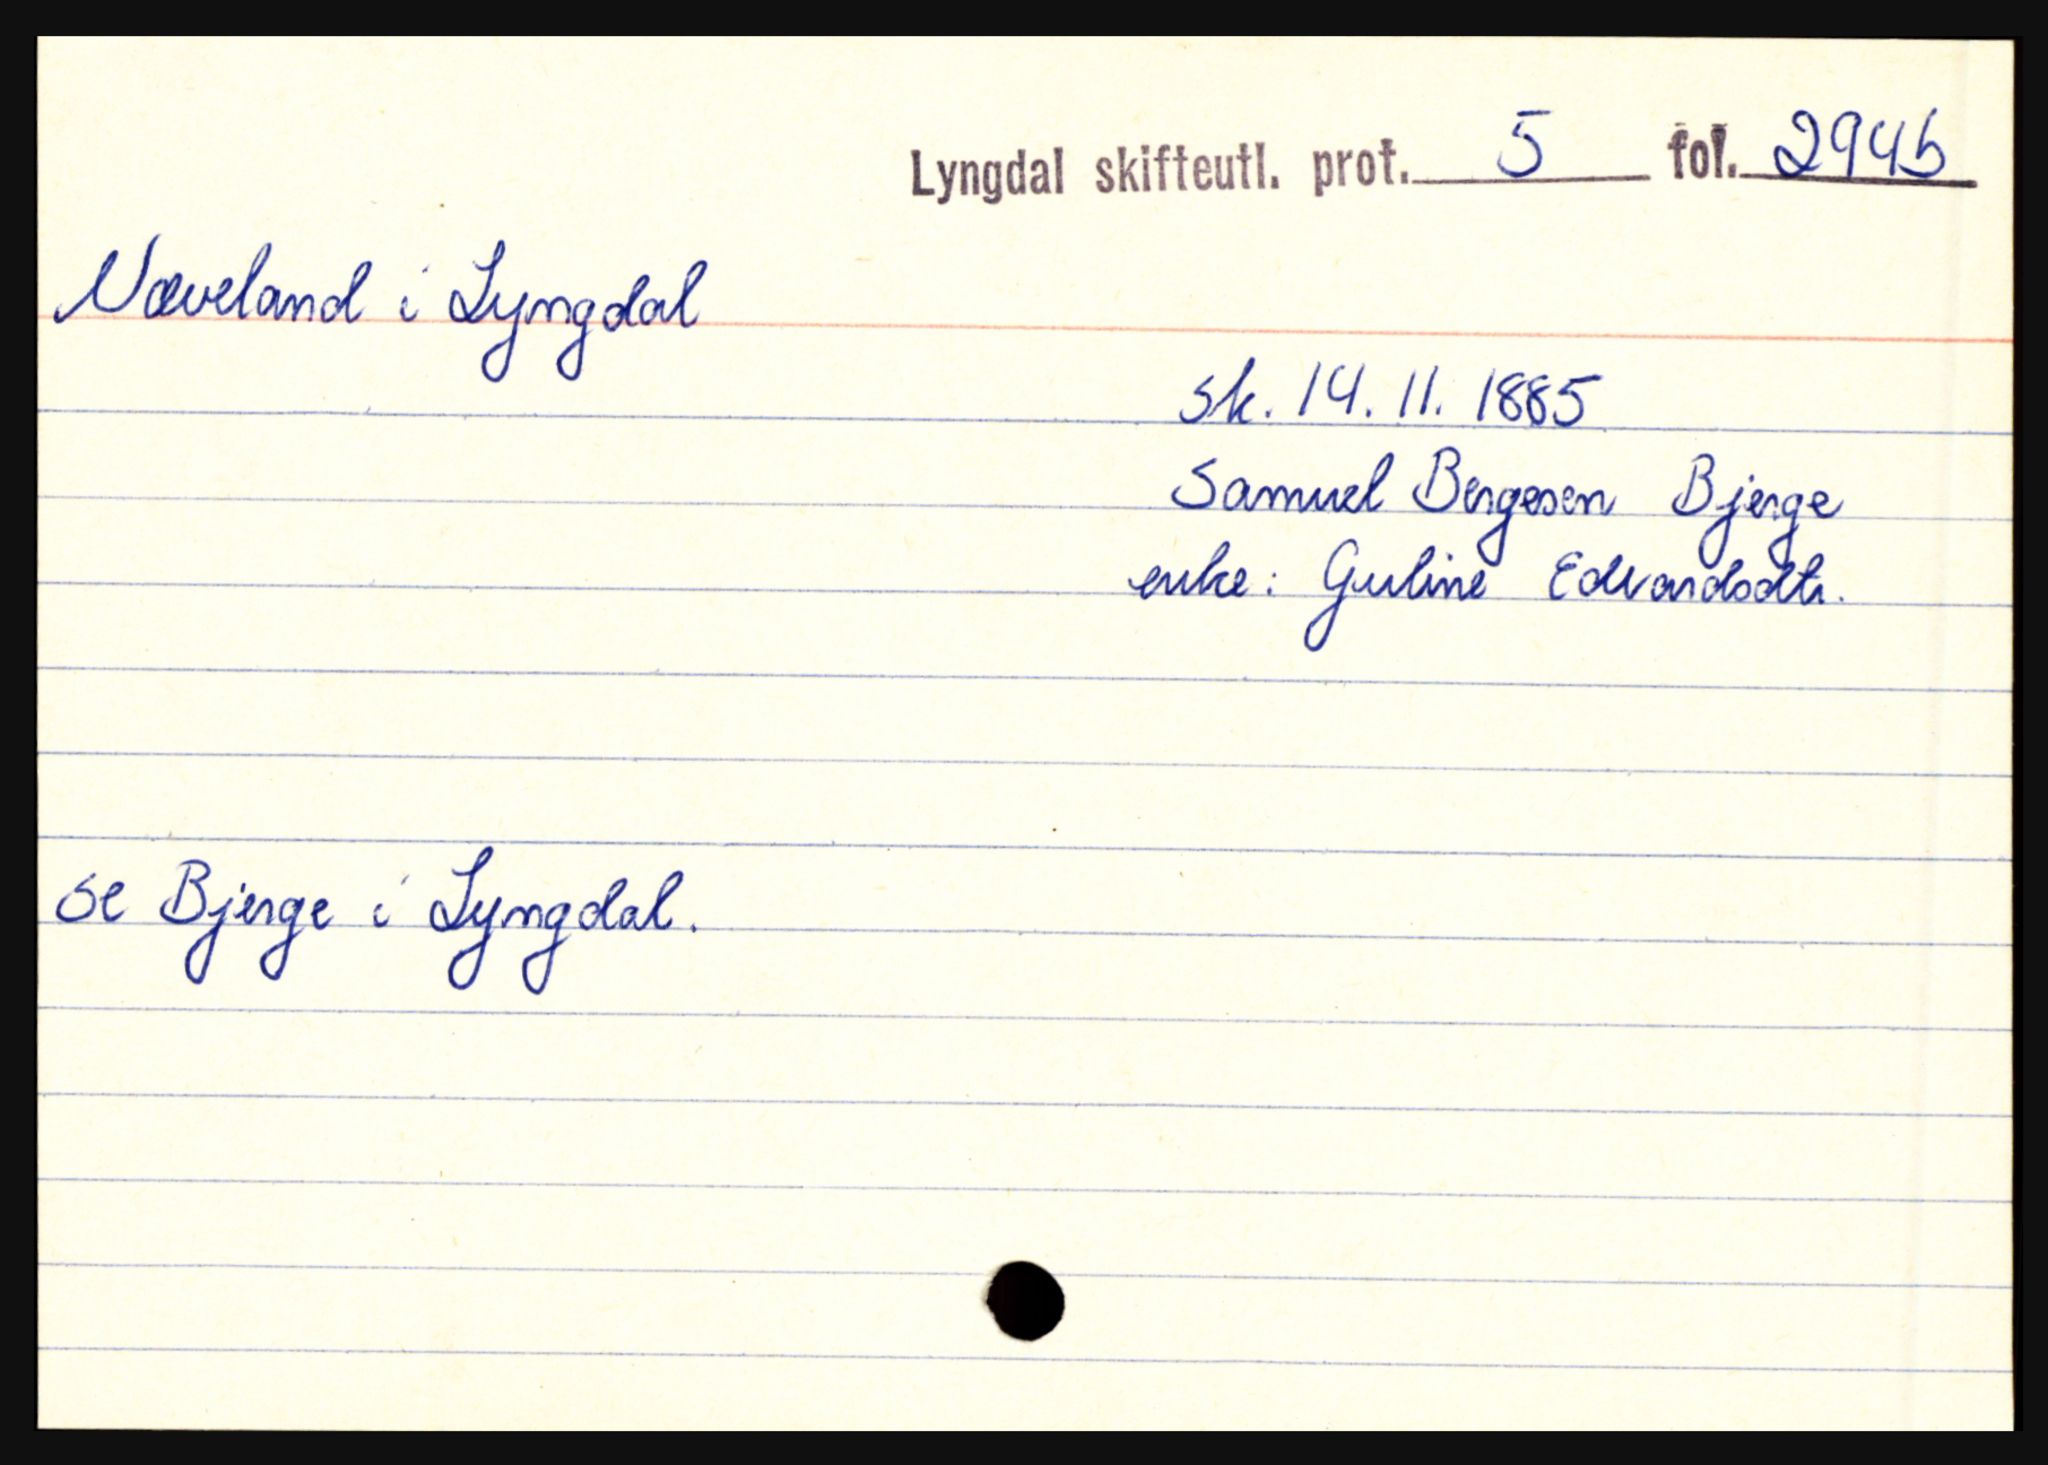 Lyngdal skifteutl. prot. 5 fol. 294b
Næveland i Lyngdal
sk. 14. 11. 1885
Samuel Bergesen Bjerge
enke: Guline Edvardsdtr.
se Bjerge i Lyngdal.